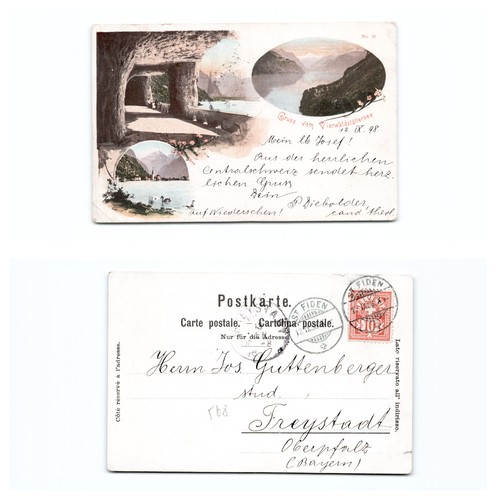 No. 18
Gruss vom Vierwaldstättersee
12. IX. 98
Mein lb Josef!
Aus der herrlichen
Centralschweiz sendet herz-
lichen Gruss
Dein
P. Diebolder,
Auf Wiedersehen!
cand. theol
Postkarte.
Carte postale. — Cartolina postale.
Nur für die Adresse.
ST. FIDEN
ST. FIDEN
10
Côté réservé à l'adresse.
Lato riservato all' indirizzo.
Herrn Jos. Guttenberger
stud.
Freystadt
Oberpfalz
(Bayern)